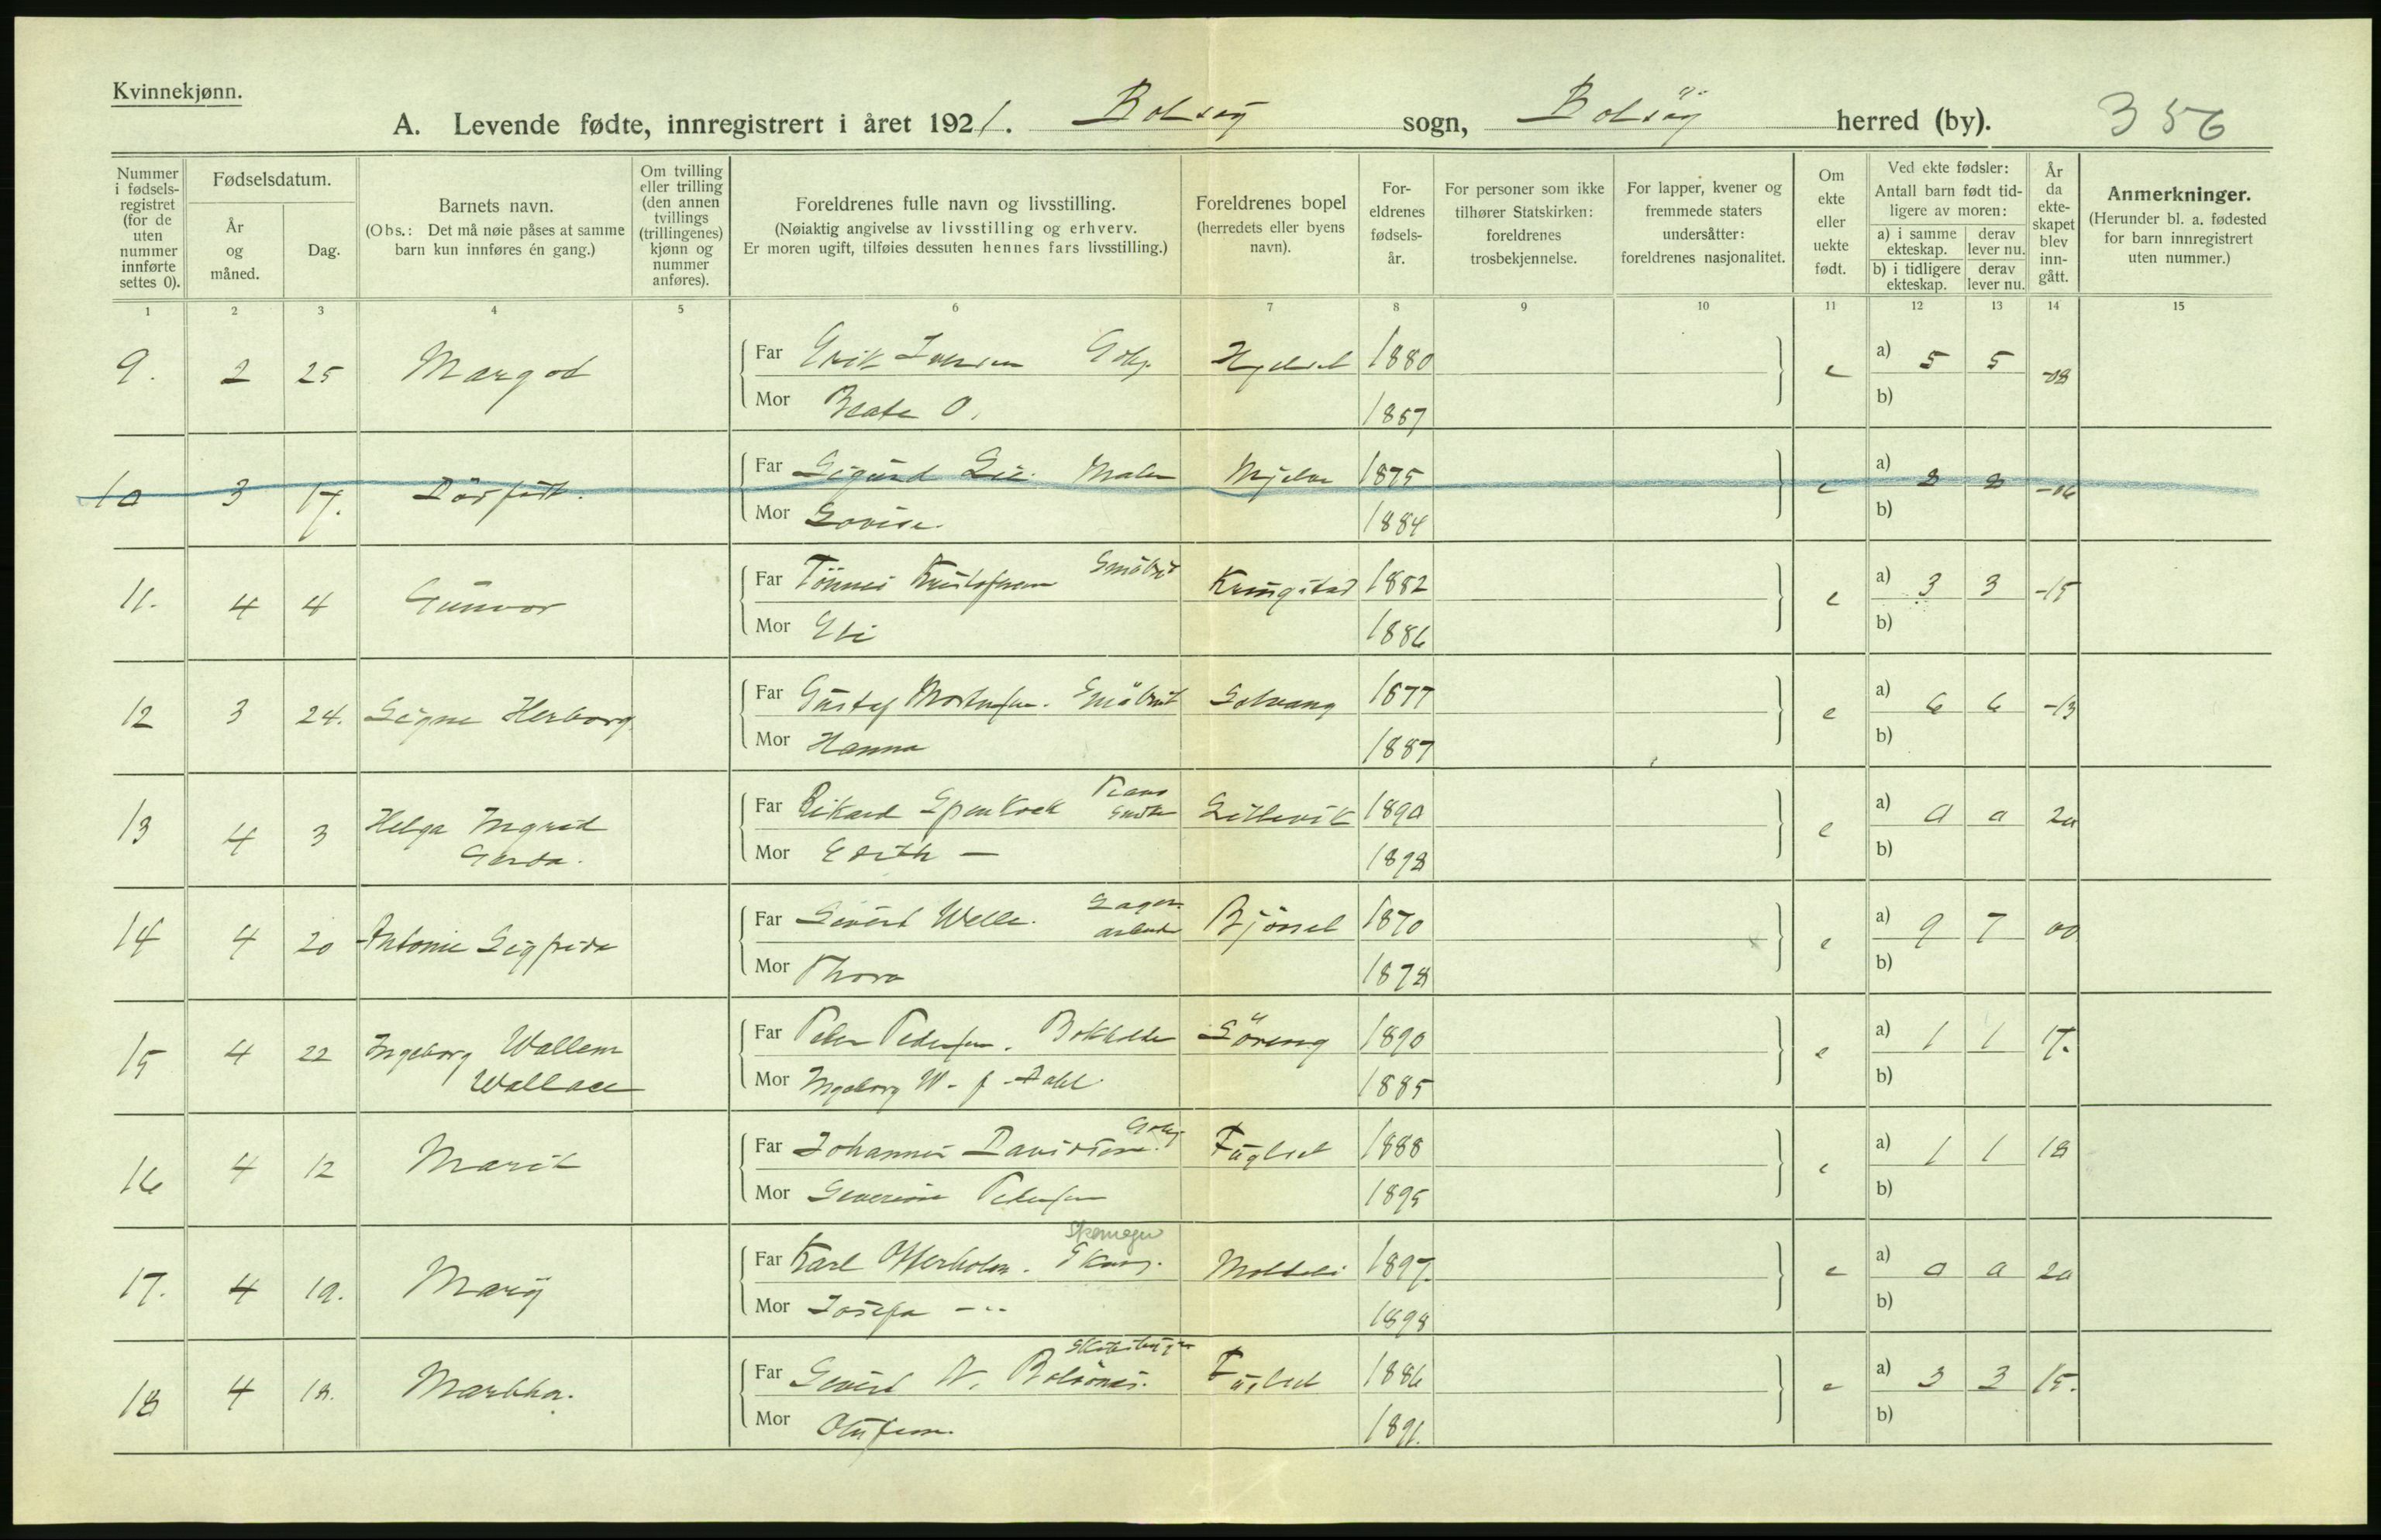 Kvinnekjønn.
A. Levende fødte, innregistrert i året 1921. Bolsøy sogn, Bolsøy herred (by). 356
Nummer i fødsels-registret (for de uten nummer innførte settes 0).
Fødselsdatum.
År og måned.
Dag.
Barnets navn.
(Obs.: Det må nøie påses at samme barn kun innføres én gang.)
Om tvilling eller trilling (den annen tvillings (trillingenes) kjønn og nummer anføres).
Foreldrenes fulle navn og livsstilling.
(Nøiaktig angivelse av livsstilling og erhverv.
Er moren ugift, tilføies dessuten hennes fars livsstilling.)
Foreldrenes bopel (herredets eller byens navn).
For-eldrenes fødsels-år.
For personer som ikke tilhører Statskirken: foreldrenes trosbekjennelse.
For lapper, kvener og fremmede staters undersåtter: foreldrenes nasjonalitet.
Om ekte eller uekte født.
Ved ekte fødsler:
Antall barn født tid-ligere av moren:
a) i samme ekteskap. derav lever nu.
b) i tidligere ekteskap. derav lever nu.
År da ekte-skapet blev inn-gått.
Anmerkninger.
(Herunder bl. a. fødested for barn innregistrert uten nummer.)
1 2 3 4 5 6 7 8 9 10 11 12 13 14 15
9. 2 25 Margod Far Erik Iversen 1880 e a) 5 5 -08
Mor Beate O. 1887 b)
10 3 17. Dödfödt. Far Sigurd Lie. Maler Mjelve 1875 e a) 8 8 -06
Mor Lovise. 1884 b)
11. 4 4 Gunvor Far Tönnes Kristofersen Småbr Kringstad 1882 e a) 3 3 -15
Mor Eli 1886 b)
12 3 24. Signe Herborg Far Gustaf Mortensen. Småbruk Solvang 1877 e a) 6 6 -13
Mor Hanna 1887 b)
13 4 3 Helga Ingrid Gerda. Far Rikard Piano Lillevik 1890 e a) 0 0 20
Mor Edith — 1898 b)
14 4 20 Antonie Sigfrida Far Sivert Welle. Lager arbeider Bjørset 1870 e a) 9 7 00
Mor Thora 1878 b)
15 4 22 Ingeborg Wallem Wallace Far Peder Pedersen. Bokholder Söreng 1890 e a) 1 1 17.
Mor Ingeborg W. f. Dahl. 1885 b)
16 4 12 Marit Far Johannes Davidsen. Fuglset 1888 e a) 1 1 18
Mor Severine Pedersen 1895 b)
17. 4 19. Mary Far Karl Otterholm. Skomager Moldeli 1897. e a) 0 0 20
Mor Josefa — 1898 b)
18 4 18. Martha. Far Sivert N. Bolsönes. Fuglset 1886 e a) 3 3 15.
Mor Olufine. 1891. b)